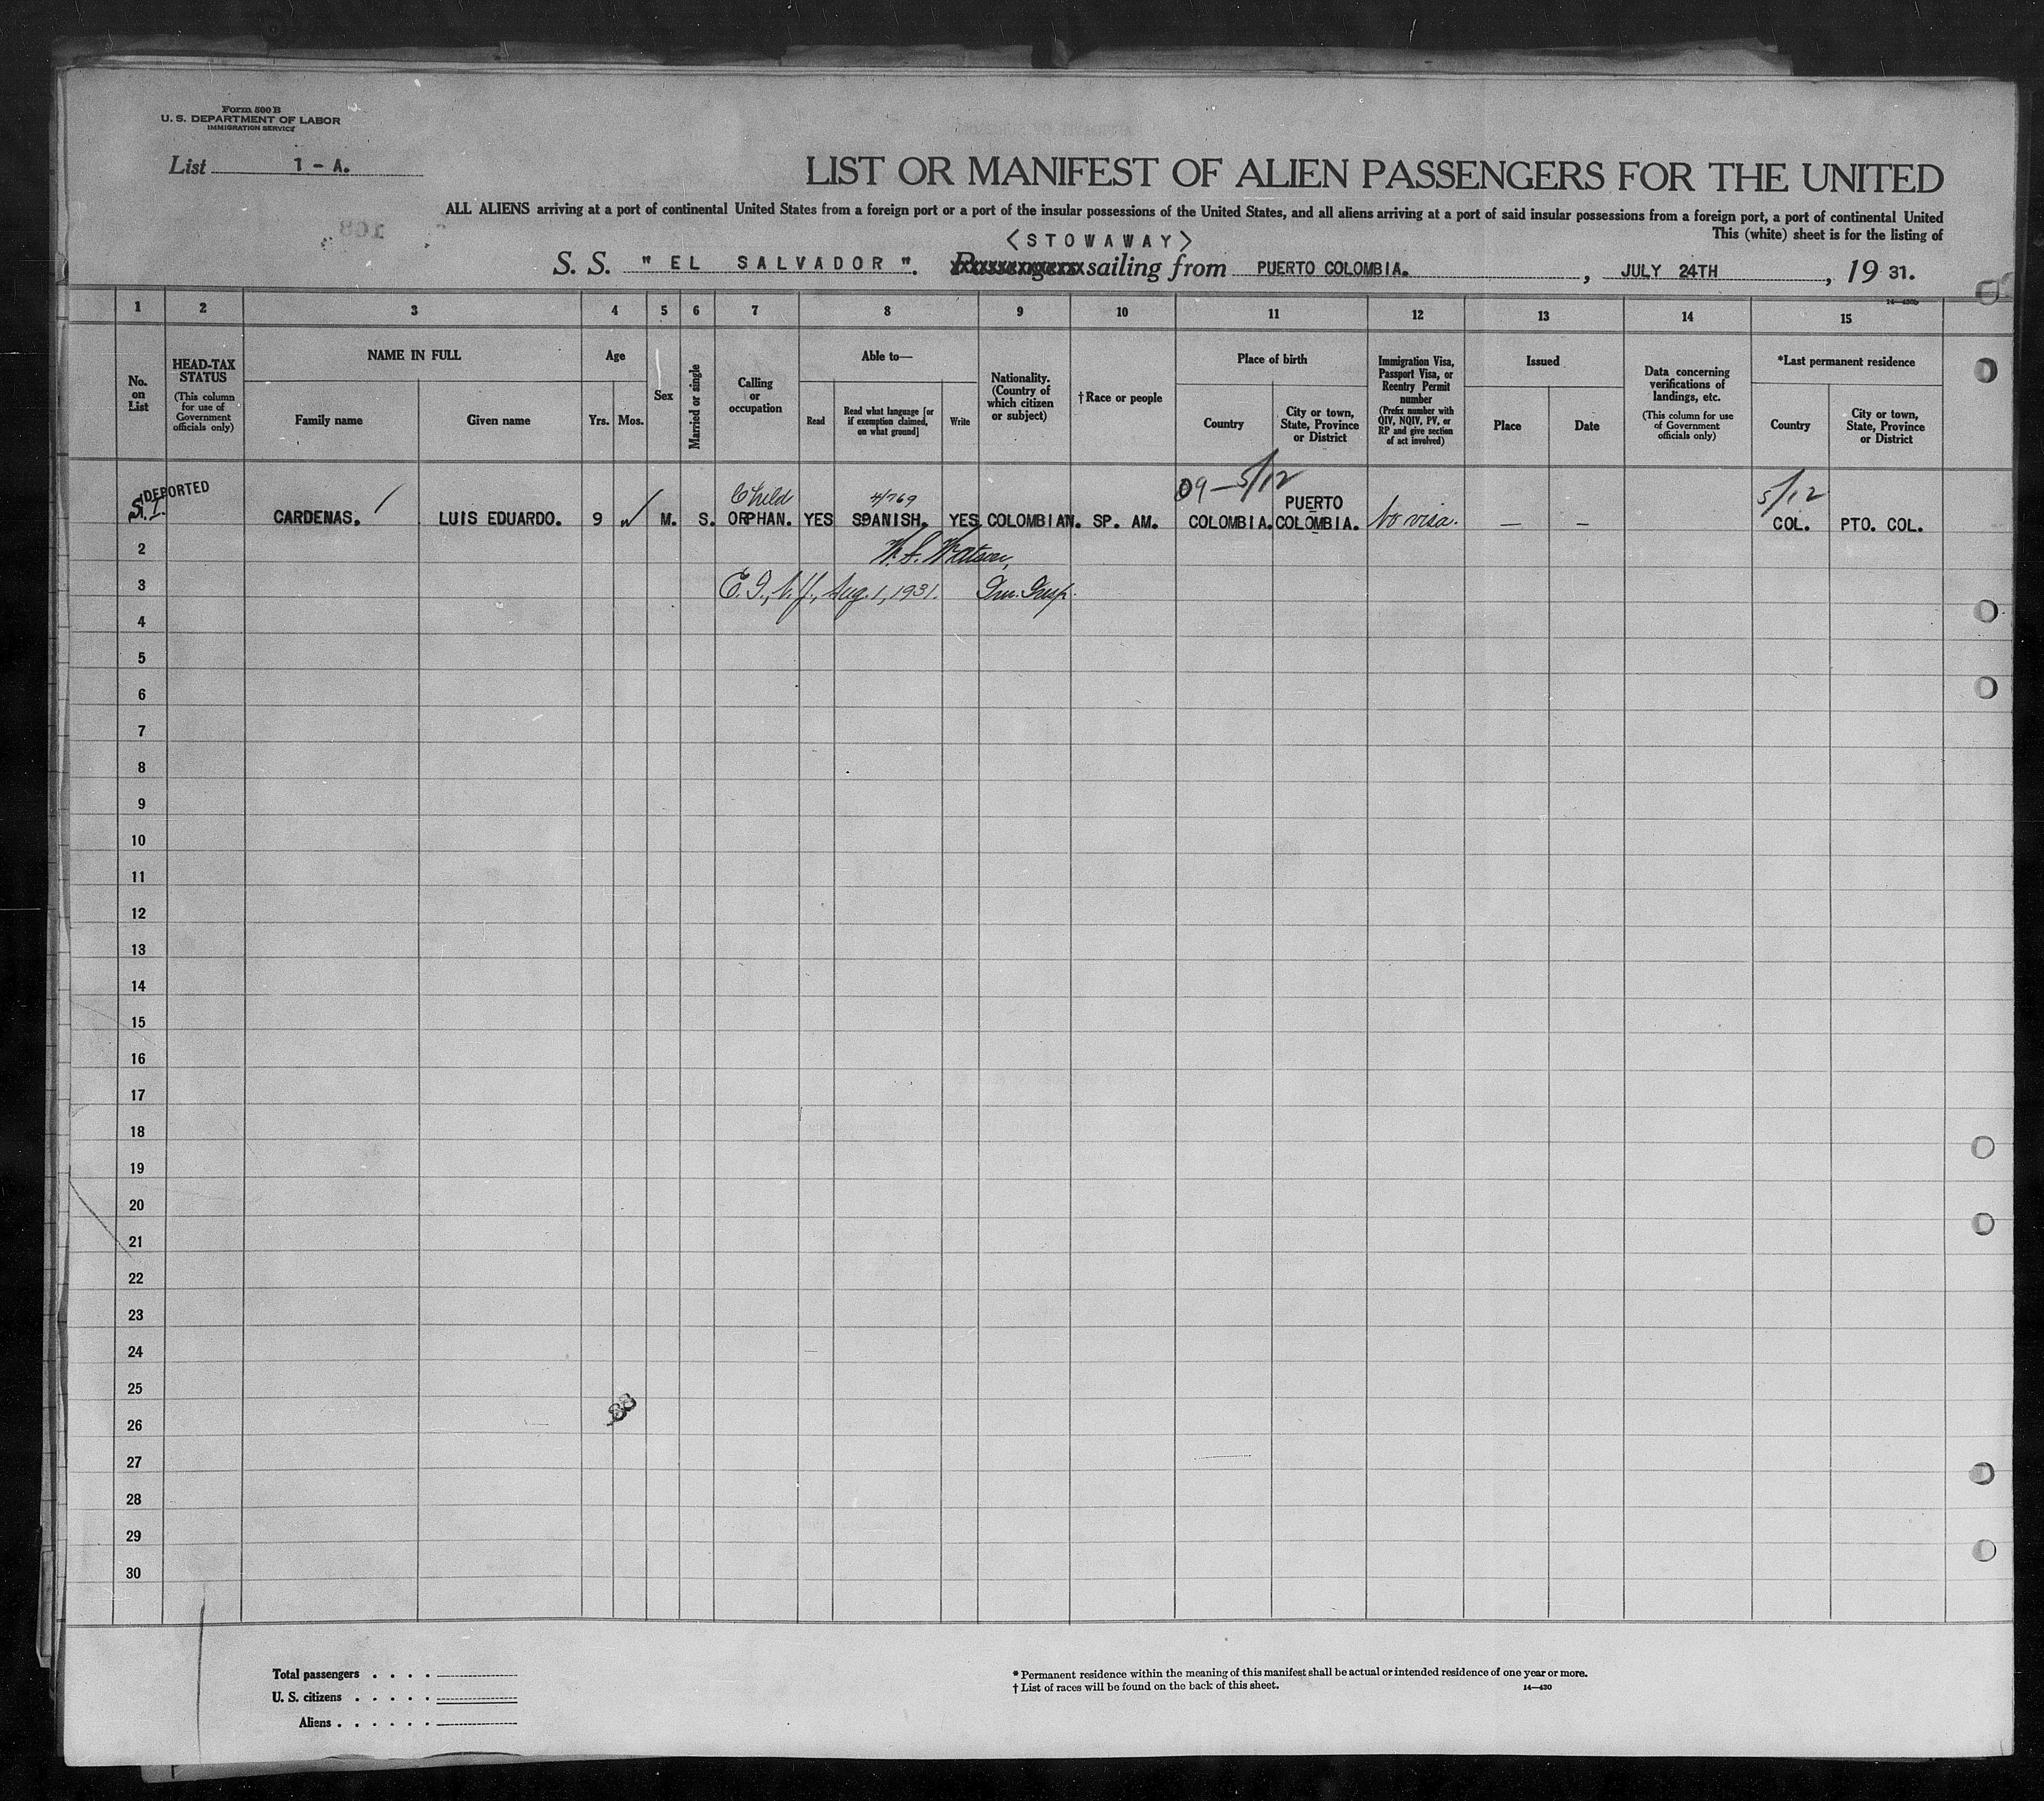 Form 500 B
U. S. DEPARTMENT OF LABOR
IMMIGRATION SERVICE
List 1 - A.
LIST OR MANIFEST OF ALIEN PASSENGERS FOR THE UNITED
ALL ALIENS arriving at a port of continental United States from a foreign port or a port of the insular possessions of the United States, and all aliens arriving at a port of said insular possessions from a foreign port, a port of continental United
This (white) sheet is for the listing of
<STOWAWAY>
S. S. "EL SALVADOR". Passengers sailing from PUERTO COLOMBIA., JULY 24TH, 19 31.
1 2 3 4 5 6 7 8 9 10 11 12 13 14 15
No. on List
HEAD-TAX STATUS
(This column for use of Government officials only)
NAME IN FULL
Family name
Given name
Age
Yrs.
Mos.
Sex
Married or single
Calling or occupation
Able to—
Read
Read what language [or if exemption claimed, on what ground]
Write
Nationality. (Country of which citizen or subject)
†Race or people
Place of birth
Country
City or town, State, Province or District
Immigration Visa, Passport Visa, or Reentry Permit number
(Prefix number with QIV, NQIV, PV, or RP and give section of act involved)
Issued
Place
Date
Data concerning verifications of landings, etc.
(This column for use of Government officials only)
*Last permanent residence
Country
City or town, State, Province or District
DEPORTED Child 4/769 09-5/12 PUERTO 5/12
S.I. CARDENAS. LUIS EDUARDO. 9 M. S. ORPHAN. YES SPANISH. YES COLOMBIAN. SP. AM. COLOMBIA. COLOMBIA. No visa. — — COL. PTO. COL.
2 Watson,
3 Aug. 1, 1931. Im. Insp.
4
5
6
7
8
9
10
11
12
13
14
15
16
17
18
19
20
21
22
23
24
25
26
27
28
29
30
Total passengers . . . .
U. S. citizens . . . . .
Aliens . . . . . .
* Permanent residence within the meaning of this manifest shall be actual or intended residence of one year or more.
† List of races will be found on the back of this sheet.
14—430